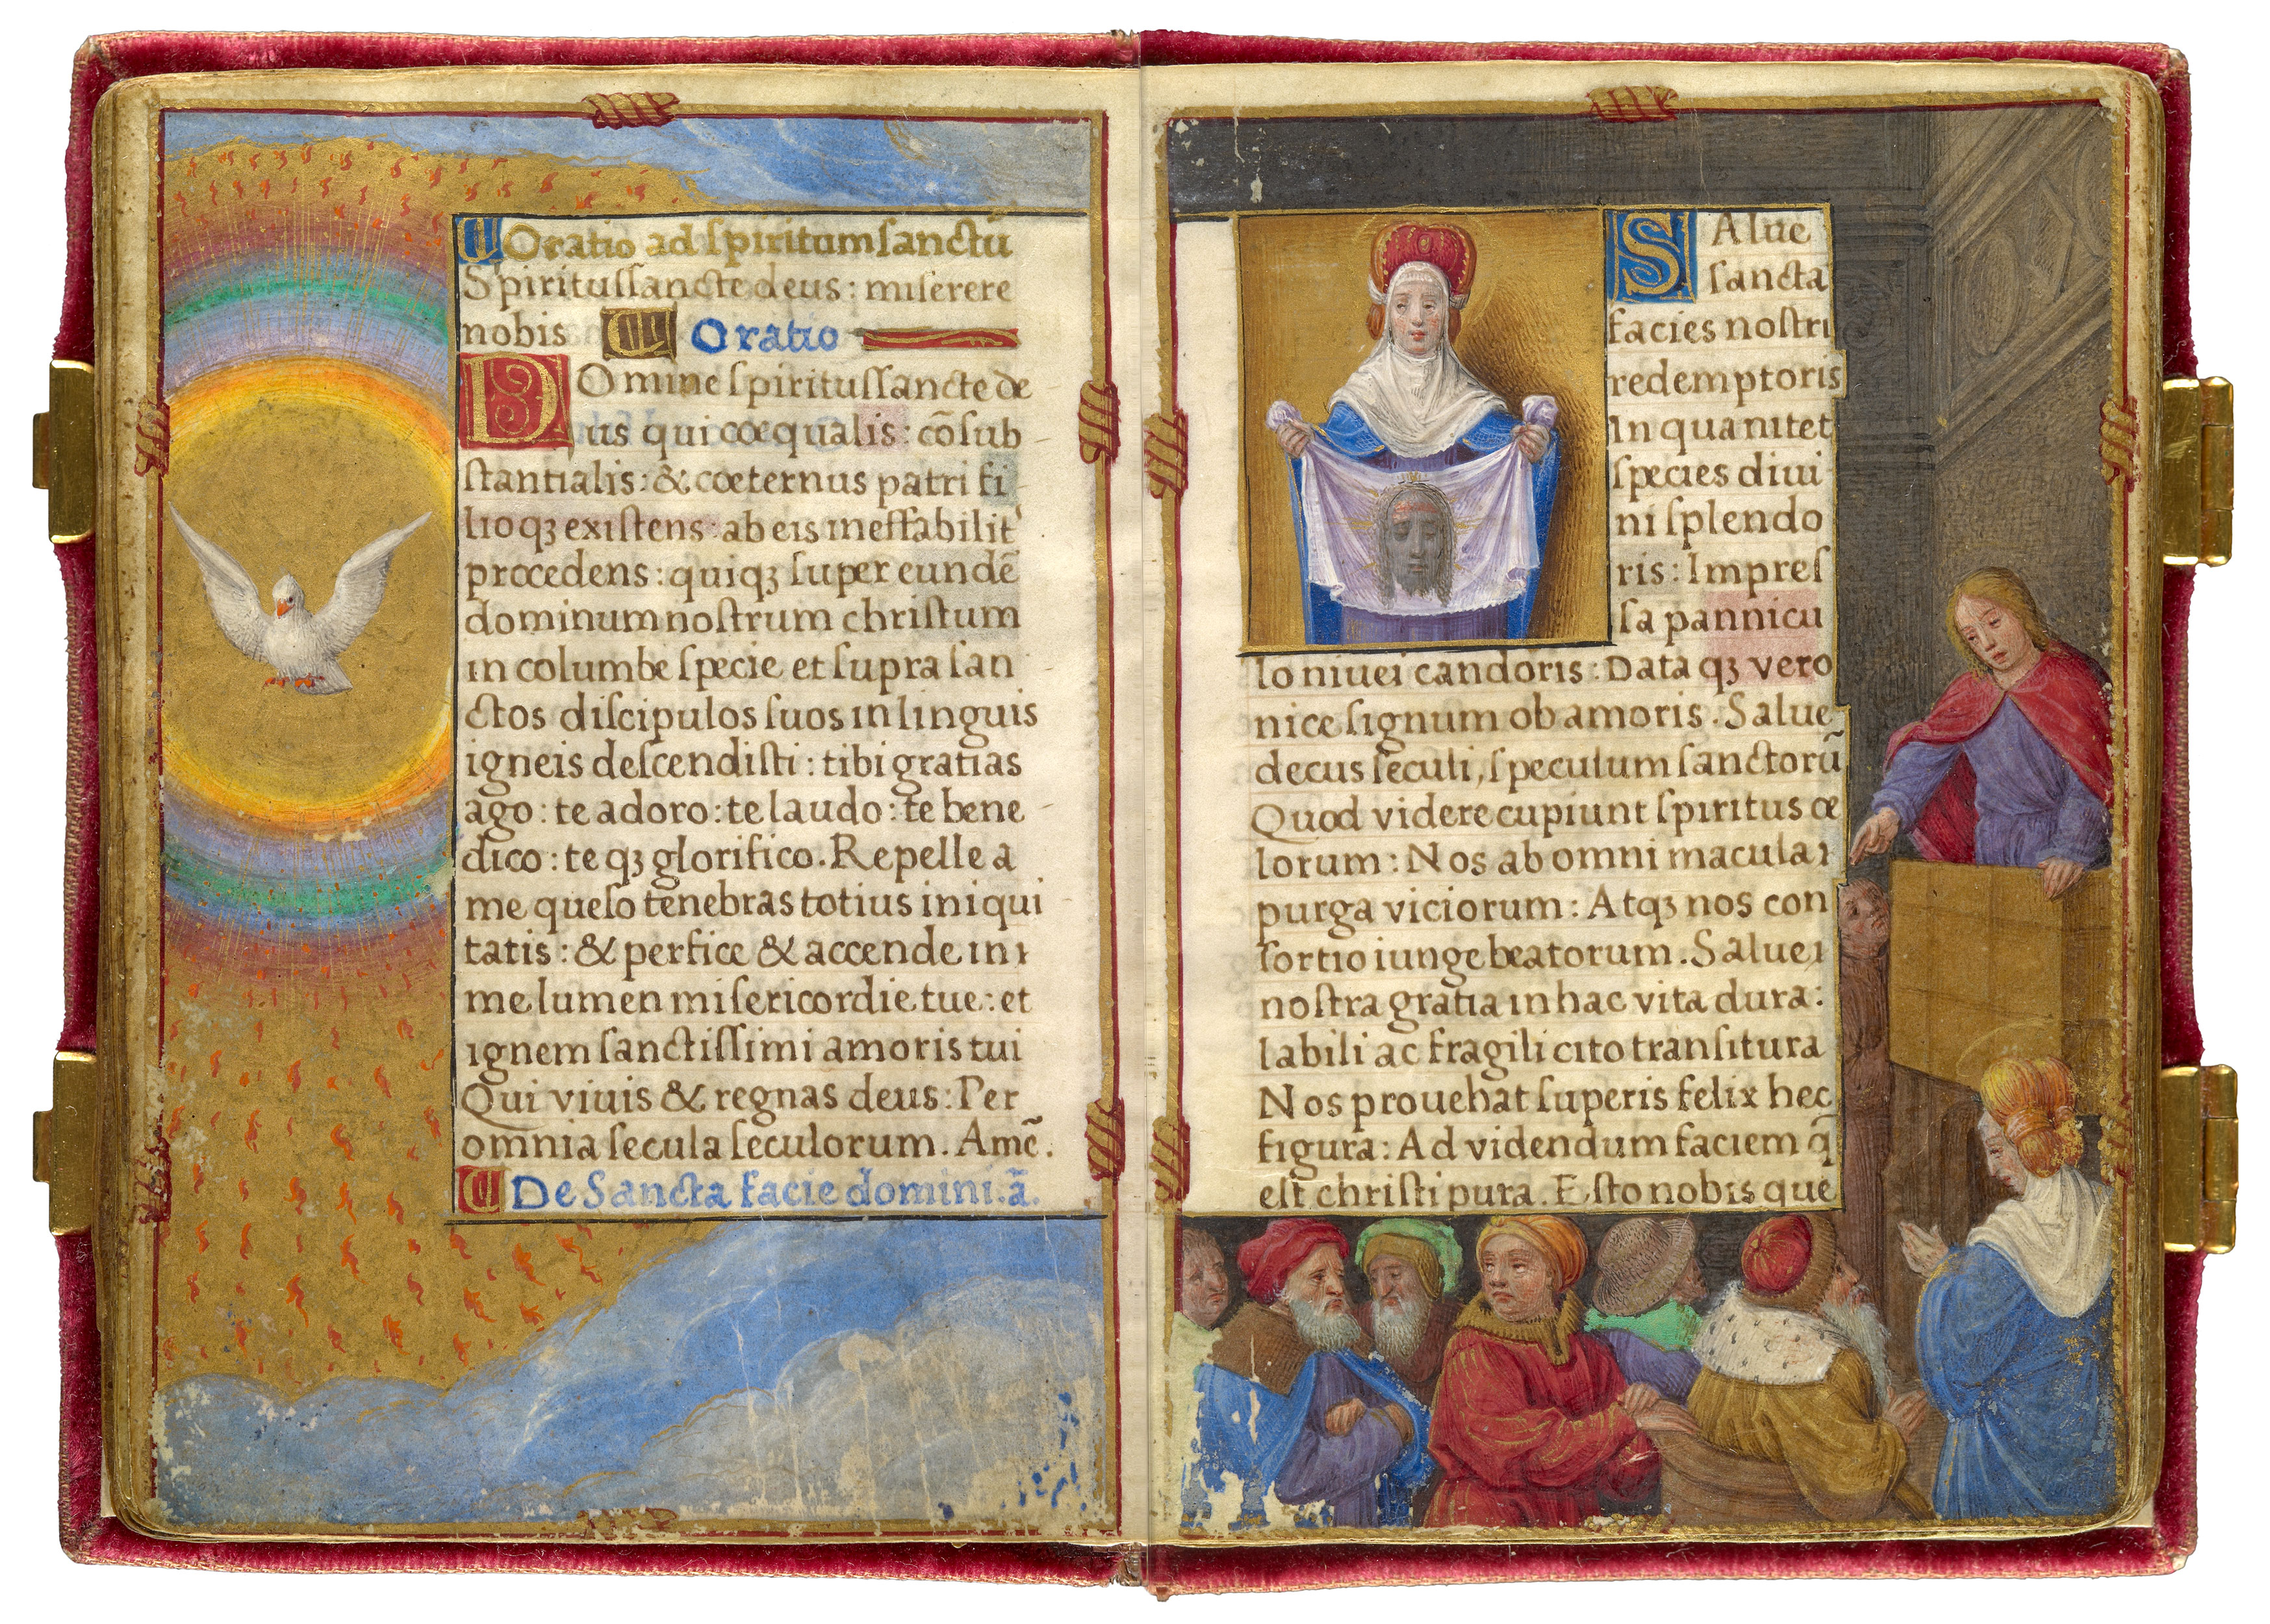 Oratio ad spiritum sanctū
Spiritussancte deus: miserere
nobis Oratio
DOmine spiritussancte de
us qui coequalis: cōsub
stantialis: & coeternus patri fi
lioqꝫ existens: ab eis ineffabilit'
procedens: quiqꝫ super eundē
dominum nostrum christum
in columbe specie et supra san
ctos discipulos suos in linguis
igneis descendisti: tibi gratias
ago: te adoro: te laudo: te bene
dico: teqꝫ glorifico. Repelle a
me queso tenebras totius iniqui
tatis: & perfice & accende in
me lumen misericordie tue: et
ignem sanctissimi amoris tui
Qui viuis & regnas deus: Per
omnia secula seculorum. Amē.
De Sancta facie domini. ā.
SAlue
sancta
facies nostri
redemptoris
In qua nitet
species diui
ni splendo
ris: Impres
sa pannicu
lo niuei candoris: Dataqꝫ vero
nice signum ob amoris. Salue
decus seculi, speculum sanctorū
Quod videre cupiunt spiritus ce
lorum: Nos ab omni macula
purga viciorum: Atqꝫ nos con
sortio iunge beatorum. Salue
nostra gratia in hac vita dura:
labili ac fragili cito transitura
Nos prouehat superis felix hec
figura: Ad videndum faciem q̄
est christi pura. Esto nobis que